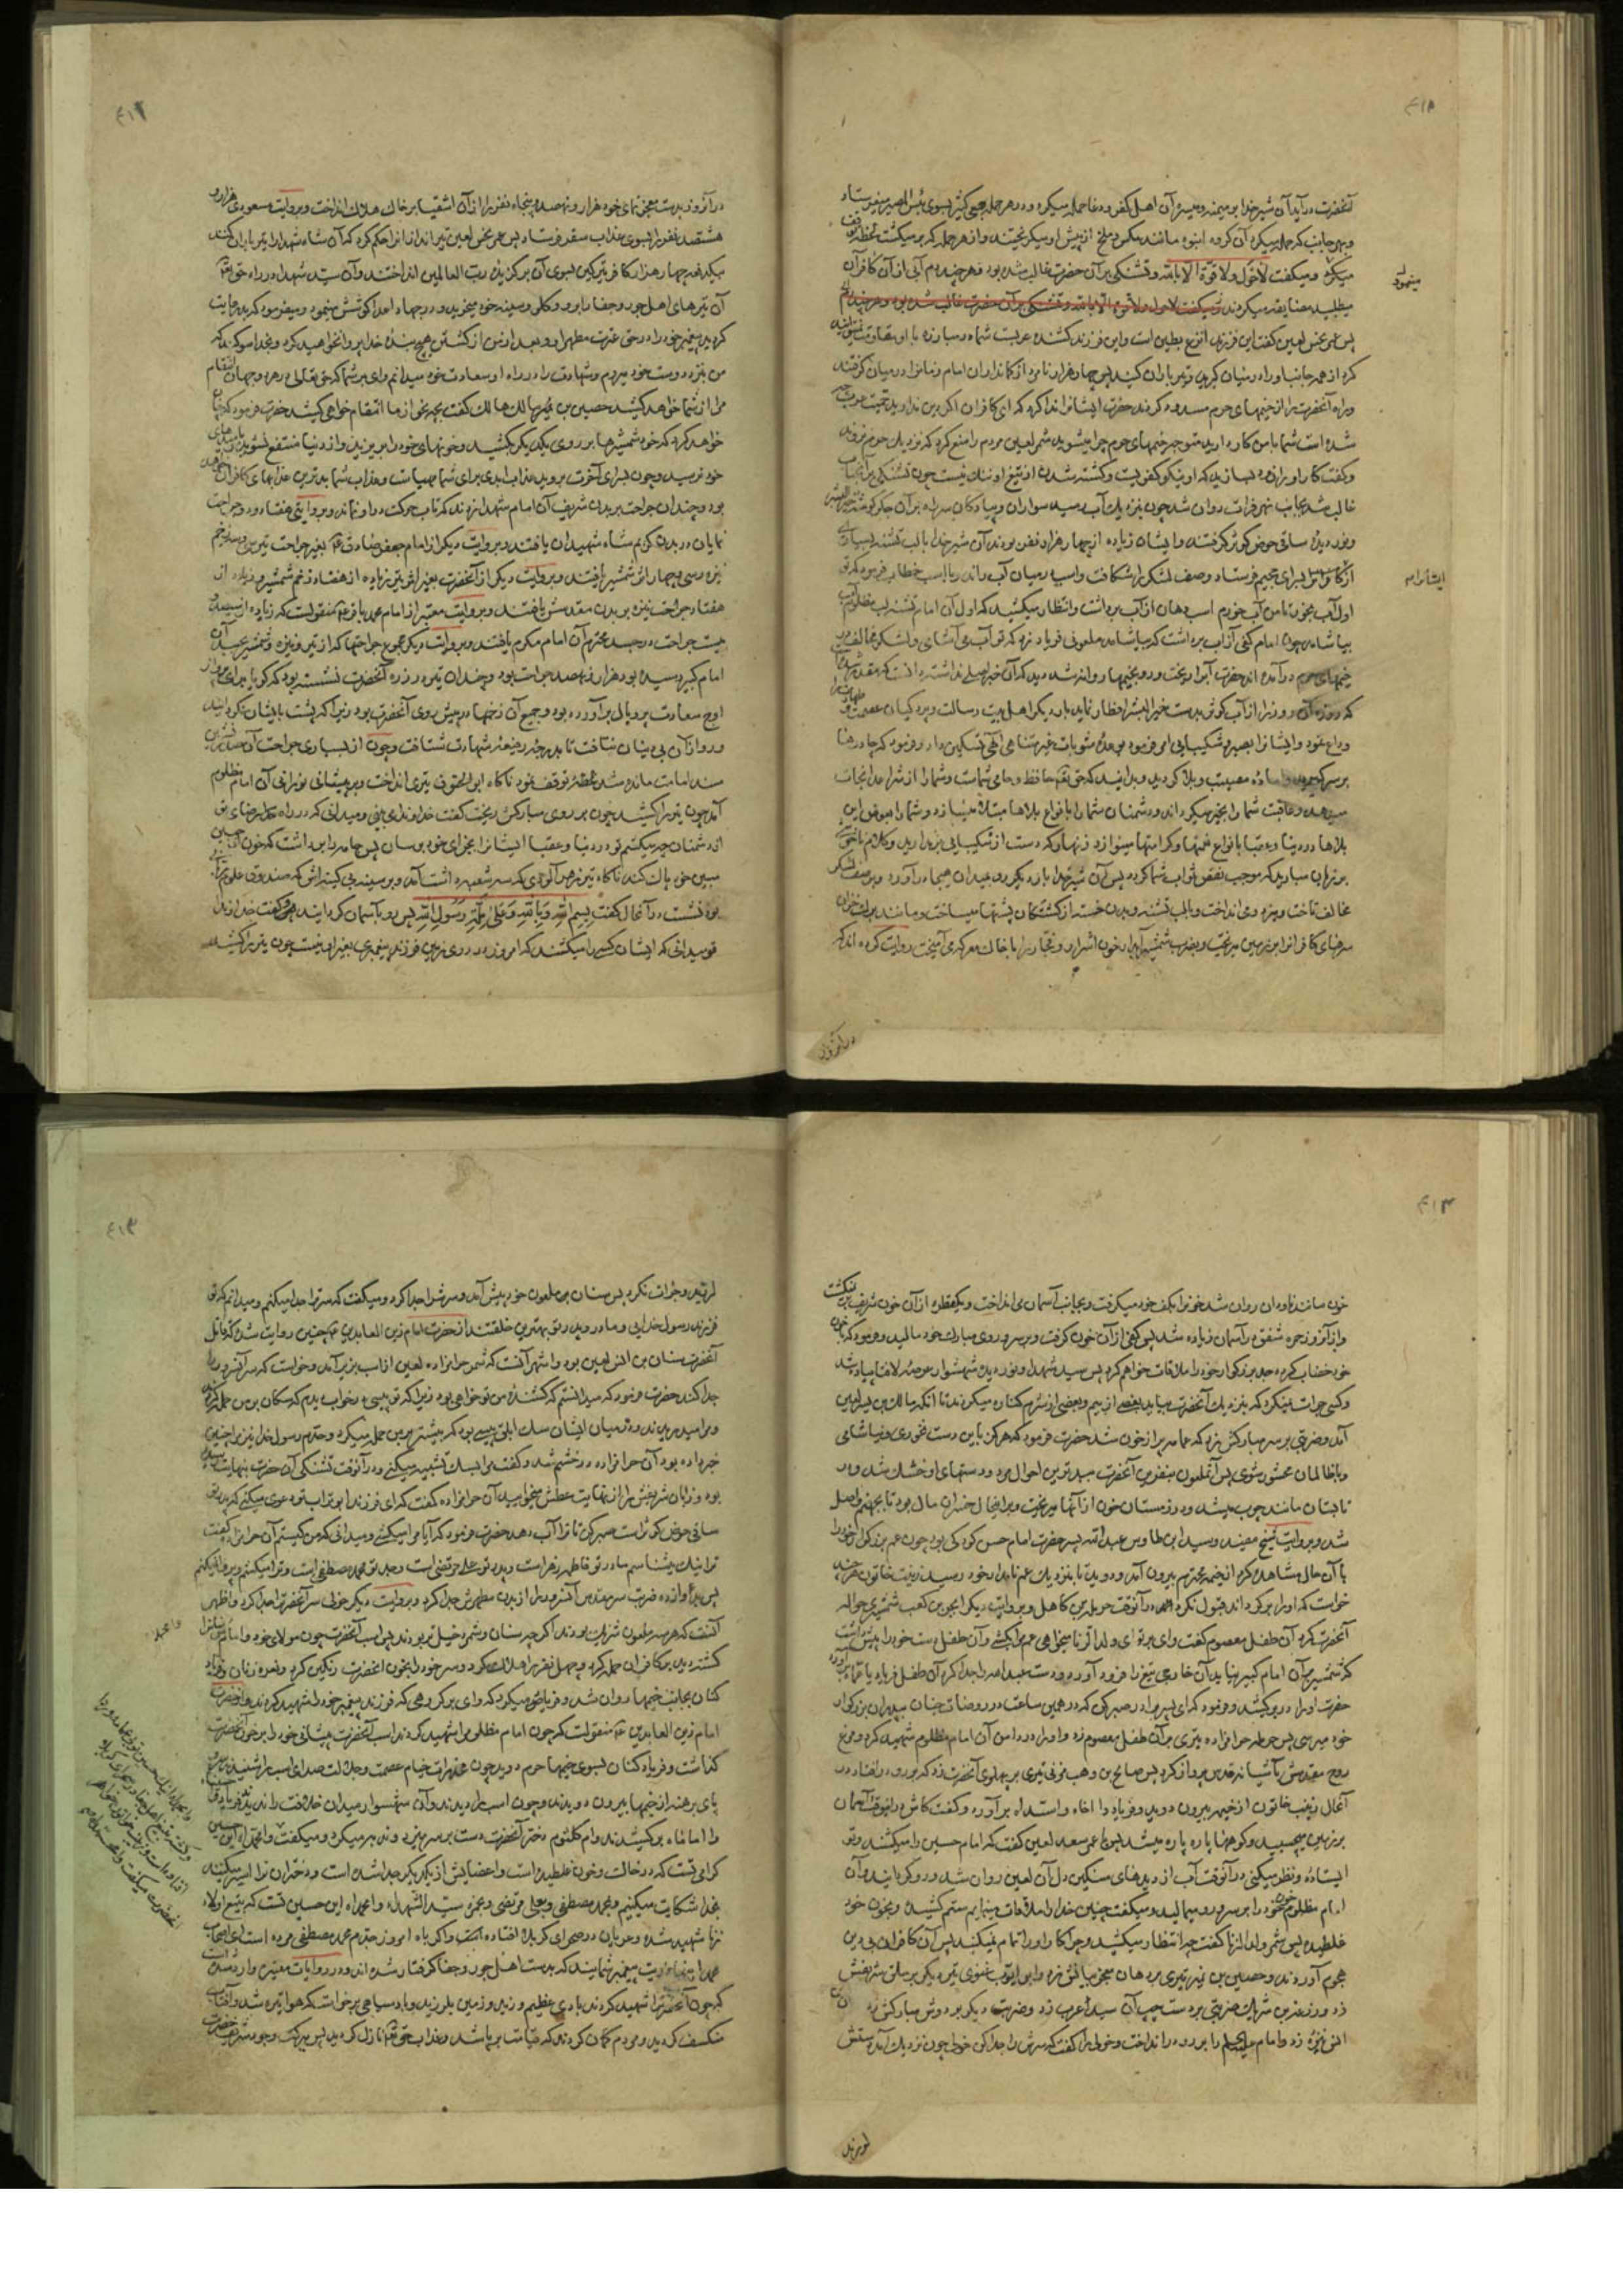 آنحضرت درآید آن شیر خدا بر میمنه و میسرهٔ آن اهل کفر و دغا حمله میکرد و در هر حمله جمعی کثیر بسوی بئس المصیر میفرستاد
و بهر جانب که حمله میکرد آن گروه انبوه مانند مکس و ملخ از پیش او میگریختند و از هر حمله که برمیگشت لحظهٔ توقف
میکرد و میگفت لا حول ولا قوة الا بالله و تشنگی بر آن حضرت غالب شده بود و هر چند دم آبی از آن کافران
میطلبید مضایقه میکردند
پس عمر نحس لعین گفت این فرزند انزع بطین است و این فرزند کشنده عربست شما در مبارزه با او مقاومت
کرد از همه جانب او را در میان گیرید و تیرباران کنید پس چهار هزار نامرد از کمانداران امام زمانرا در میان گرفتند
و راه آنحضرت را از خیمهای حرم مسدود کردند حضرت ایشانرا ندا کرد که ای کافران اگر دین ندارید
شده است شما با من کار دارید متوجه خیمهای حرم چرا میشوید شمر لعین مردم را منع کرد که نزدیک حرم نروید
و گفت کار او را بزودی بسازید که او نیکو کفویست و کشته شدن از تیغ او ننگ نیست چون تشنگی بر آنجناب
غالب شد بجانب نهر فرات روان شد چون بنزدیک آب رسید سواران و پیادگان سر راه بر آن جگرگوشهٔ خیر البشر
و نور دیدهٔ ساقی حوض کوثر گرفتند و ایشان زیاده از چهار هزار نفر بودند آن شیر خدا با لب تشنه بسیاری
از کافران را بسرای جحیم فرستاد و صف لشکر را شکافت و اسب در میان آب راند و با اسب خطاب فرمود که تو
اول آب بخور تا من آب خورم اسب دهان از آب برداشت و انتظار میکشید که اول آن امام تشنه لب مظلوم آب
بیاشامد چون امام کفی از آب برداشت که بیاشامد ملعونی فریاد زد که تو آب می آشامی و لشکر مخالف در
خیمهای حرم درآمده اند حضرت آب را ریخت و رو بخیمها روانه شد دید که آن خبر اصلی نداشته
که روزهٔ آن روز را از آب کوثر بدست خیر البشر افطار نماید بار دیگر اهل بیت رسالت و پردگیان عصمت و طهارت را
وداع نمود و ایشانرا بصبر و شکیبایی امر فرمود بوعدهٔ مثوبات غیر متناهی الهی تسکین داد و فرمود که چادرها
بر سر گیرید و آمادهٔ مصیبت و بلا گردید و بدانید که حق تعالی حافظ و حامی شماست و شما را از شر اعدا نجات
میدهد و عاقبت شما را بخیر میگرداند و دشمنان شما را بانواع بلاها مبتلا میسازد و شما را بعوض این
بلاها در دنیا و عقبا بانواع نعمتها و کرامتها مینوازد زنهار که دست از شکیبایی برمدارید و کلام ناخوشی
بر زبان میارید که موجب نقص ثواب شما گردد پس آن شیر خدا بار دیگر رو بمیدان هیجا درآورد و بر صف لشکر
مخالف تاخت و میزد و می انداخت و با لب تشنه و بدن خسته از کشتگان پشتها میساخت و مانند برگ خزان
سرهای کافرانرا بر زمین میریخت و بضرب شمشیر آبدار خون اشرار و فجار را با خاک معرکه می آمیخت روایت کرده اند که
میفرمود
ایشانرا
درآنروز
۴۱۲
درآنروز بدست معجزنمای خود هزار و نهصد و پنجاه نفر را از آن اشقیا بر خاک هلاک انداخت و بروایت مسعودی هزار و
هشتصد نفر را بسوی عذاب سقر فرستاد پس عمر نحس لعین تیراندازانرا حکم کرد که آن شاه شهدا را تیرباران کنند
بیکدفعه چهار هزار کافر تیر کین بسوی آن برگزیدهٔ رب العالمین انداختند و آن سید شهدا در راه حق تعالی
آن تیرهای اهل جور و جفا را برو و گلو و سینهٔ خود میخرید و در جهاد اعدا کوشش مینمود و میفرمود که بد رعایت
کردید پیغمبر خود را در حق عترت مطهر او و بعد از من از کشتن هیچ بندهٔ خدا پروا نخواهید کرد و بخدا سوگند که
من بنزد دوست خود میروم و شهادت را در راه او سعادت خود میدانم وای بر شما که حق تعالی در هر دو جهان انتقام
مرا از شما خواهد کشید حصین بن مالک گفت بچه نحو از ما انتقام خواهی کشید حضرت فرمود که چنان
خواهد کرد که خود شمشیرها بر روی یکدیگر بکشید و خونهای خود را بریزید و از دنیا منتفع نشوید و بامیدهای
خود نرسید و چون بسرای آخرت بروید عذاب ابدی برای شما مهیاست و عذاب شما بدترین عذابهای کافران خواهد
بود و چندان جراحت بر بدن شریف آن امام شهدا زدند که تاب حرکت در او نماند و بروایتی هفتاد و دو جراحت
نمایان در بدن کریم شاه شهیدان یافتند و بروایت دیگر از امام جعفر صادق ع بغیر جراحت تیر سی و سه زخم
نیزه و سی و چهار اثر شمشیر یافتند و بروایت دیگر از آنحضرت بغیر اثر تیر زیاده از هفتاد زخم شمشیر و زیاده از
هفتاد جراحت نیزه بر بدن مقدسش یافتند و بروایت معتبر از امام محمد باقر ع منقولست که زیاده از سیصد و
بیست جراحت در جسد محترم آن امام مکرم یافتند و بروایت دیگر مجموع جراحتها که از تیر و نیزه و شمشیر بجسد آن
امام کبیر رسیده بود هزار و نهصد جراحت بود و چندان تیر در زره آنحضرت نشسته بود که گویا برای پرواز
اوج سعادت پر و بالی برآورده بود و جمیع آن زخمها در پیش روی آنحضرت بود زیرا که پشت بایشان نگردانید
و رو از آن بی دینان نتافت تا بدرجهٔ رفیعهٔ شهادت شتافت و چون از بسیاری جراحت آن صدرنشین
مسند امامت مانده شد لحظهٔ توقف نمود ناگاه ابو الحتوف تیری انداخت و بر پیشانی نورانی آن امام مظلوم
آمد چون تیر را کشید خون بر روی مبارکش ریخت گفت خداوندا می بینی و میدانی که در راه رضای تو
از دشمنان چه میکشم تو در دنیا و عقبا ایشانرا بجزای خود برسان پس جامه را برداشت که خون از
جبین خود پاک کند ناگاه تیر زهرآلودی که سه شعبه داشت آمد و بر سینهٔ بی کینه اش که صندوق علوم ربانی
بود نشست در آنحال گفت بسم الله وبالله وعلی ملة رسول الله پس رو بآسمان گردانید و گفت خداوندا
تو میدانی که ایشان کسی را میکشند که امروز در روی زمین فرزند پیغمبری بغیر او نیست چون تیر را کشید
خون مانند ناودان روان شد خونرا بکف خود میگرفت و بجانب آسمان می انداخت و یکقطره از آن خون شریف برنگشت
و از آنروز حمره شفق در آسمان زیاده شد پس کفی از آن خون گرفت و بر سر و روی مبارک خود مالید و فرمود که با خون
خود خضاب کرده جد بزرگوار خود را ملاقات خواهم کرد پس سید شهدا و نور دیدهٔ شهسوار عرصهٔ لافتا پیاده شد
و کسی جرات نمیکرد که بنزدیک آنحضرت بیاید بعضی از بیم و بعضی از شرم کناره میکردند تا آنکه مالک بن یسر لعین
آمد و ضربتی بر سر مبارکش زد که عمامه پر از خون شد حضرت فرمود که هرگز باین دست نخوری و نیاشامی
و با ظالمان محشور شوی پس آنملعون بنفرین آنحضرت ببدترین احوال مرد و دستهای او خشک شد و در
تابستان مانند چوب میشد و در زمستان خون از آنها میریخت و بر این حال خسران مآل بود تا بجهنم واصل
شد و بروایت شیخ مفید و سید ابن طاوس عبد الله پسر حضرت امام حسن کودکی بود چون عم بزرگوار خود را
با آن حال مشاهده کرد از خیمهٔ محترم بیرون آمد و دوید تا بنزدیک عم نامدار خود رسید زینب خاتون هر چند
خواست که او را برگرداند قبول نکرد در آنوقت حرملة بن کاهل و بروایت دیگر ابجر بن کعب شمشیری حوالهٔ
آنحضرت کرد آن طفل معصوم گفت وای بر تو ای ولد الزنا میخواهی عم مرا بکشی و آن طفل دست خود را پیش داشت
که شمشیر بر آن امام کبیر نیاید آن خارجی تیغ را فرود آورد و دست عبد الله را جدا کرد آن طفل فریاد یا عماه برآورد
حضرت او را در بر کشید و فرمود که ای پسر برادر صبر کن که در همین ساعت در روضات جنان بپدران بزرگوار
خود میرسی پس حرمله حرامزاده تیری بر آن طفل معصوم زد و او را در دامن آن امام مظلوم شهید کرد و مرغ
روح مقدسش بآشیانهٔ قدس پرواز کرد پس صالح بن وهب مزنی تیری بر پهلوی آنحضرت زد که برو درافتاد در
آنحال زینب خاتون از خیمه بیرون دوید و فریاد وا اخاه وا سیداه برآورد و گفت کاش در اینوقت آسمان
بر زمین میچسبید و کوهها پاره پاره میشد پس با عمر سعد لعین گفت که امام حسین را میکشند و تو
ایستادهٔ و نظر میکنی در آنوقت آب از دیدهای سنگین دل آن لعین روان شد و رو گردانید و آن
امام مظلوم خون خود را بر سر و رو میمالید و میگفت چنین خدا را ملاقات مینمایم ستم کشیده و بخون خود
غلطیده پس شمر ولد الزنا گفت چه انتظار میکشید و چرا کار او را تمام نمیکنید پس آن کافران بی دین
هجوم آوردند و حصین بن نمیر تیری بر دهان معجز بیانش زد و ابو ایوب غنوی تیر دیگر بر حلق شریفش
زد و زرعة بن شریک ضربتی بر دست چپ آن سید عرب زد و ضربت دیگر بر دوش مبارکش زد
انس نیزه زد و امام را بر رو درانداخت و خولی را گفت که سرش را جدا کن خولی چون نزدیک آمد دستش
لرزید
۴۱۳
لرزید و جرات نکرد پس سنان ملعون خود پیش آمد و سرش را جدا کرد و میگفت که سر ترا جدا میکنم و میدانم که تو
فرزند رسول خدایی و مادر و پدر تو بهترین خلقند از حضرت امام زین العابدین ع چنین روایت شده که قاتل
آنحضرت سنان بن انس لعین بود و اشهر آنست که شمر حرامزادهٔ لعین از اسب بزیر آمد و خواست که سر آنسرور را
جدا کند حضرت فرمود که میدانستم که کشندهٔ من تو خواهی بود زیرا که تو پیسی و در خواب دیدم که سگان بر من حمله کردند
و مرا میدریدند و در میان ایشان سگ ابلق پیسی بود که بیشتر بر من حمله میکرد و جدم رسول خدا نیز مرا چنین
خبر داده بود آن حرامزاده در خشم شد و گفت مرا بسگ تشبیه میکنی و در آنوقت تشنگی آن حضرت بنهایت رسیده
بود و زبان شریفش را از نهایت عطش میخایید آن حرامزاده گفت که ای فرزند ابو تراب تو دعوی میکنی که پدر تو
ساقی حوض کوثر است صبر کن تا ترا آب دهد حضرت فرمود که آیا مرا میکشی و میدانی که من کیستم آن حرامزاده گفت
ترا نیک میشناسم مادر تو فاطمه زهراست و پدر تو علی مرتضی است و جد تو محمد مصطفی است و ترا میکشم و پروا نمیکنم
پس بدوازده ضرب سر مقدس آنسرور را از بدن مطهرش جدا کرد و بروایت دیگر خولی سر آنحضرت را جدا کرد و اظهر
آنست که هر سه ملعون شریک بودند اگر چه سنان و شمر دخیل تر بودند پس اسب آنحضرت چون مولای خود و امام زمانرا
کشته دید بر کافران حمله کرد و چهل نفر را هلاک کرد و سر خود را بخون آنحضرت رنگین کرد و نعره زنان و فریاد
کنان بجانب خیمها روان شد و فریاد میکرد که وای بر گروهی که فرزند پیغمبر خود را شهید کردند و از حضرت
امام زین العابدین ع منقولست که چون امام مظلوم را شهید کردند اسب آنحضرت پیشانی خود را بر خون آنحضرت
گذاشت و فریاد کنان بسوی خیمها حرم دوید چون مخدرات خیام عصمت و جلالت صدای اسب را شنیدند سر و
پای برهنه از خیمها بیرون دویدند و چون اسب را دیدند و آن شهسوار میدان خلافت را ندیدند فریاد
وا اماماه برکشیدند و ام کلثوم دختر آنحضرت دست بر سر میزد و ندبه میکرد و میگفت وا محمداه این حسین
گرامی تست که در خاک و خون غلطیده است و اعضایش از یکدیگر جدا شده است و دختران ترا اسیر میکنند
بخدا شکایت میکنیم و بمحمد مصطفی و بعلی مرتضی و بحمزهٔ سید الشهداء وا محمداه این حسین تست که بتیغ اولاد
زنا شهید شده و عریان در صحرای کربلا افتاده است وا کرباه امروز جدم محمد مصطفی مرده است ای اصحاب
محمد اینها ذریت پیغمبر شمایند که بدست اهل جور و جفا گرفتار شده اند و در روایات معتبره وارد شده است
که چون آنحضرت را شهید کردند بادی عظیم وزید و زمین بلرزید و باد سیاهی برخواست که هوا تیره شد و آفتاب
منکسف گردید و مردم گمان کردند که قیامت برپا شد و عذاب حق تعالی نازل گردید پس ببرکت وجود شریف حضرت